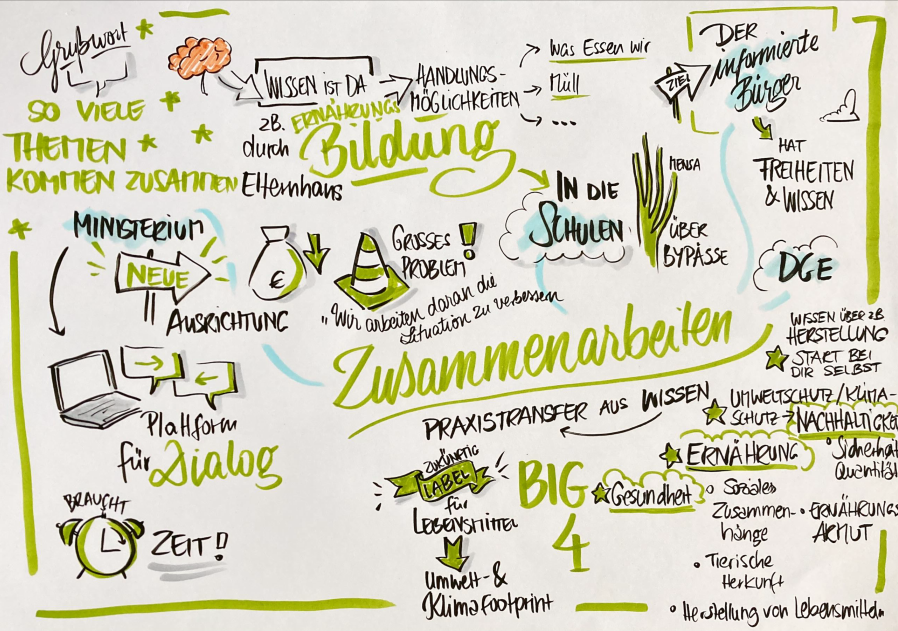 Grußwort
SO VIELE
THEMEN
KOMMEN ZUSAMMEN
WISSEN IST DA
HANDLUNGS-
MÖGLICHKEITEN
Was Essen wir
Müll
...
zB. ERNÄHRUNGS
durch Bildung
Elternhaus
IN DIE
SCHULEN
MENSA
ÜBER
BYPÄSSE
ZIEL
DER
informierte
Bürger
HAT
FREIHEITEN
& WISSEN
DGE
MINISTERIUM
NEUE
AUSRICHTUNG
€
GROSSES
PROBLEM !
"Wir arbeiten daran die
Situation zu verbessen
Zusammenarbeiten
Plattform
für Dialog
BRAUCHT
ZEIT!
PRAXISTRANSFER AUS WISSEN
ZUKÜNFTIG
LABEL
für
LEBENSMITTEL
Umwelt- &
Klimafootprint
BIG
4
WISSEN ÜBER zB
HERSTELLUNG
START BEI
DIR SELBST
UMWELTSCHUTZ/KLIMA-
SCHUTZ → NACHHALTIGKEI
ERNÄHRUNG
• Sicherhat
Quantität
Gesundheit
Soziales
Zusammen-
hänge
• ERNÄHRUNGS
ARMUT
• Tierische
Herkunft
• Herstellung von Lebensmitteln